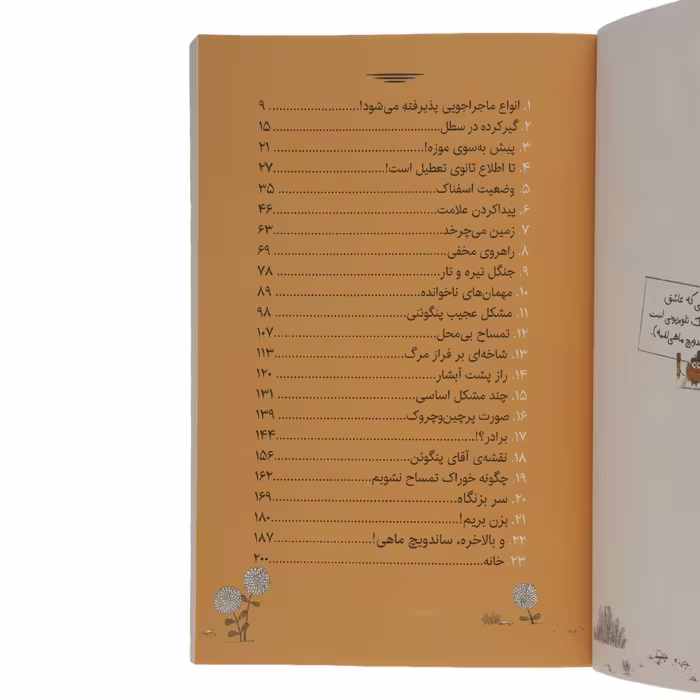 ۱. انواع ماجراجویی پذیرفته می‌شود!.................... ۹
۲. گیرکرده در سطل.................................... ۱۵
۳. پیش به‌سوی موزه!.................................... ۲۱
۴. تا اطلاع ثانوی تعطیل است!.................... ۲۷
۵. وضعیت اسفناک.................................... ۳۵
۶. پیداکردن علامت.................................... ۴۶
۷. زمین می‌چرخد.................................... ۶۳
۸. راهروی مخفی.................................... ۶۹
۹. جنگل تیره و تار.................................... ۷۸
۱۰. مهمان‌های ناخوانده.................................... ۸۹
۱۱. مشکل عجیب پنگوئنی.................................... ۹۸
۱۲. تمساح بی‌محل.................................... ۱۰۷
۱۳. شاخه‌ای بر فراز مرگ.................................... ۱۱۳
۱۴. راز پشت آبشار.................................... ۱۲۰
۱۵. چند مشکل اساسی.................................... ۱۳۱
۱۶. صورت پرچین‌وچروک.................................... ۱۳۹
۱۷. برادر؟!.................................... ۱۴۴
۱۸. نقشه‌ی آقای پنگوئن.................................... ۱۵۶
۱۹. چگونه خوراک تمساح نشویم.................... ۱۶۲
۲۰. سر بزنگاه.................................... ۱۶۹
۲۱. بزن بریم!.................................... ۱۸۰
۲۲. و بالاخره، ساندویچ ماهی!.................... ۱۸۷
۲۳. خانه.................................... ۲۰۰
ی که عاشق
تلویزیونی است